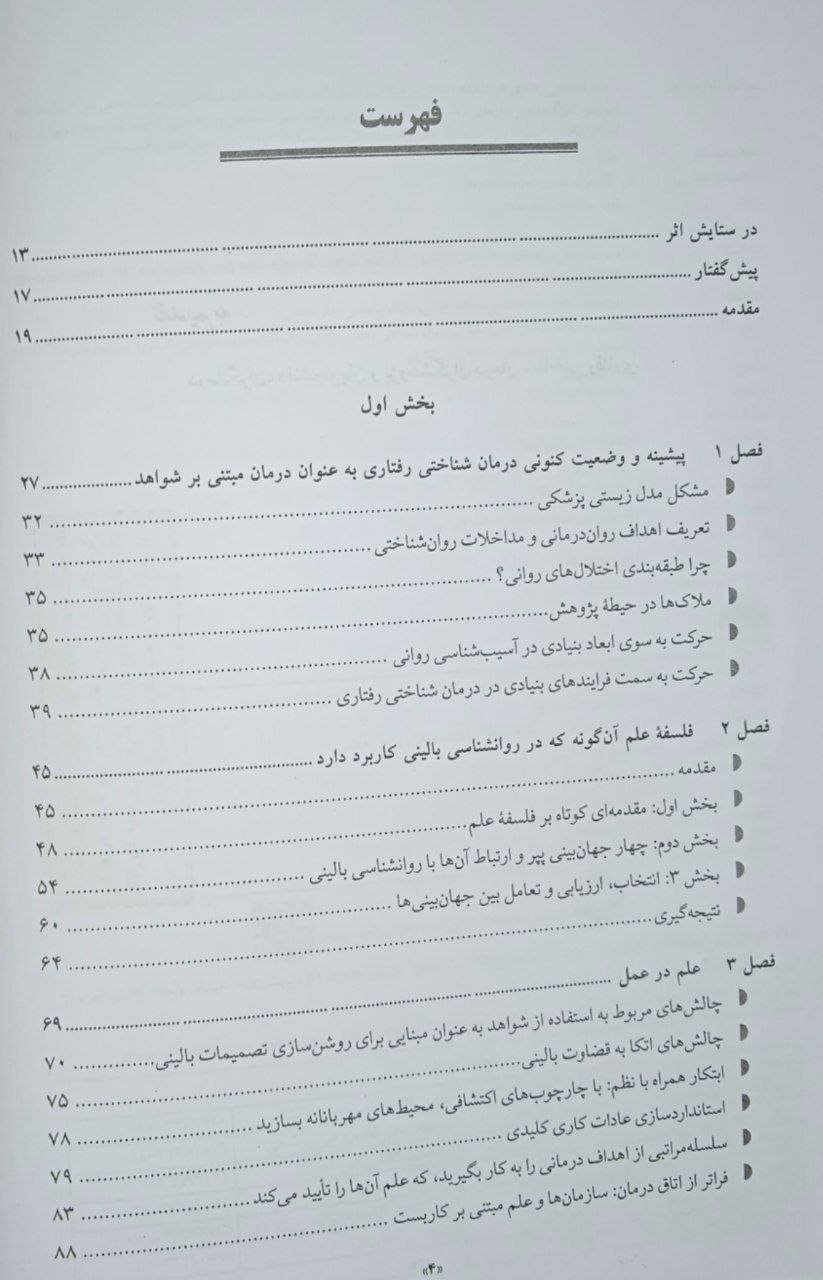 فهرست
در ستایش اثر ........ ۱۳
پیش‌گفتار ........ ۱۷
مقدمه ........ ۱۹
بخش اول
فصل ۱ پیشینه و وضعیت کنونی درمان شناختی رفتاری به عنوان درمان مبتنی بر شواهد ........ ۲۷
مشکل مدل زیستی پزشکی ........ ۳۲
تعریف اهداف روان‌درمانی و مداخلات روان‌شناختی ........ ۳۳
چرا طبقه‌بندی اختلال‌های روانی؟ ........ ۳۵
ملاک‌ها در حیطهٔ پژوهش ........ ۳۵
حرکت به سوی ابعاد بنیادی در آسیب‌شناسی روانی ........ ۳۸
حرکت به سمت فرایندهای بنیادی در درمان شناختی رفتاری ........ ۳۹
فصل ۲ فلسفهٔ علم آن‌گونه که در روانشناسی بالینی کاربرد دارد ........ ۴۵
مقدمه ........ ۴۵
بخش اول: مقدمه‌ای کوتاه بر فلسفهٔ علم ........ ۴۸
بخش دوم: چهار جهان‌بینی پپر و ارتباط آن‌ها با روانشناسی بالینی ........ ۵۴
بخش ۳: انتخاب، ارزیابی و تعامل بین جهان‌بینی‌ها ........ ۶۰
نتیجه‌گیری ........ ۶۴
فصل ۳ علم در عمل ........ ۶۹
چالش‌های مربوط به استفاده از شواهد به عنوان مبنایی برای روشن‌سازی تصمیمات بالینی ........ ۷۰
چالش‌های اتکا به قضاوت بالینی ........ ۷۵
ابتکار همراه با نظم: با چارچوب‌های اکتشافی، محیط‌های مهربانانه بسازید ........ ۷۸
استانداردسازی عادات کاری کلیدی ........ ۷۹
سلسله‌مراتبی از اهداف درمانی را به کار بگیرید، که علم آن‌ها را تأیید می‌کند ........ ۸۳
فراتر از اتاق درمان: سازمان‌ها و علم مبتنی بر کاربست ........ ۸۸
«۴»